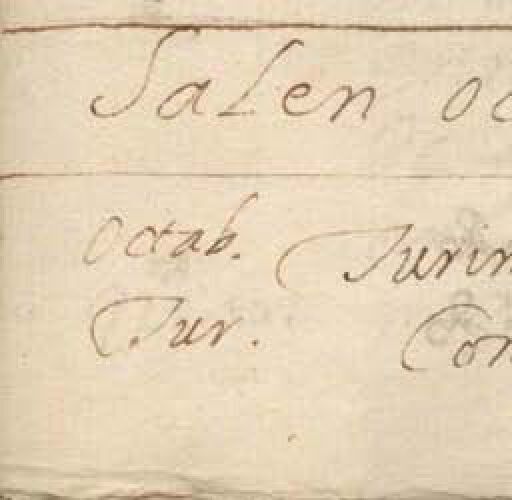 Salen oc
Octab. Turin
Tur. Con